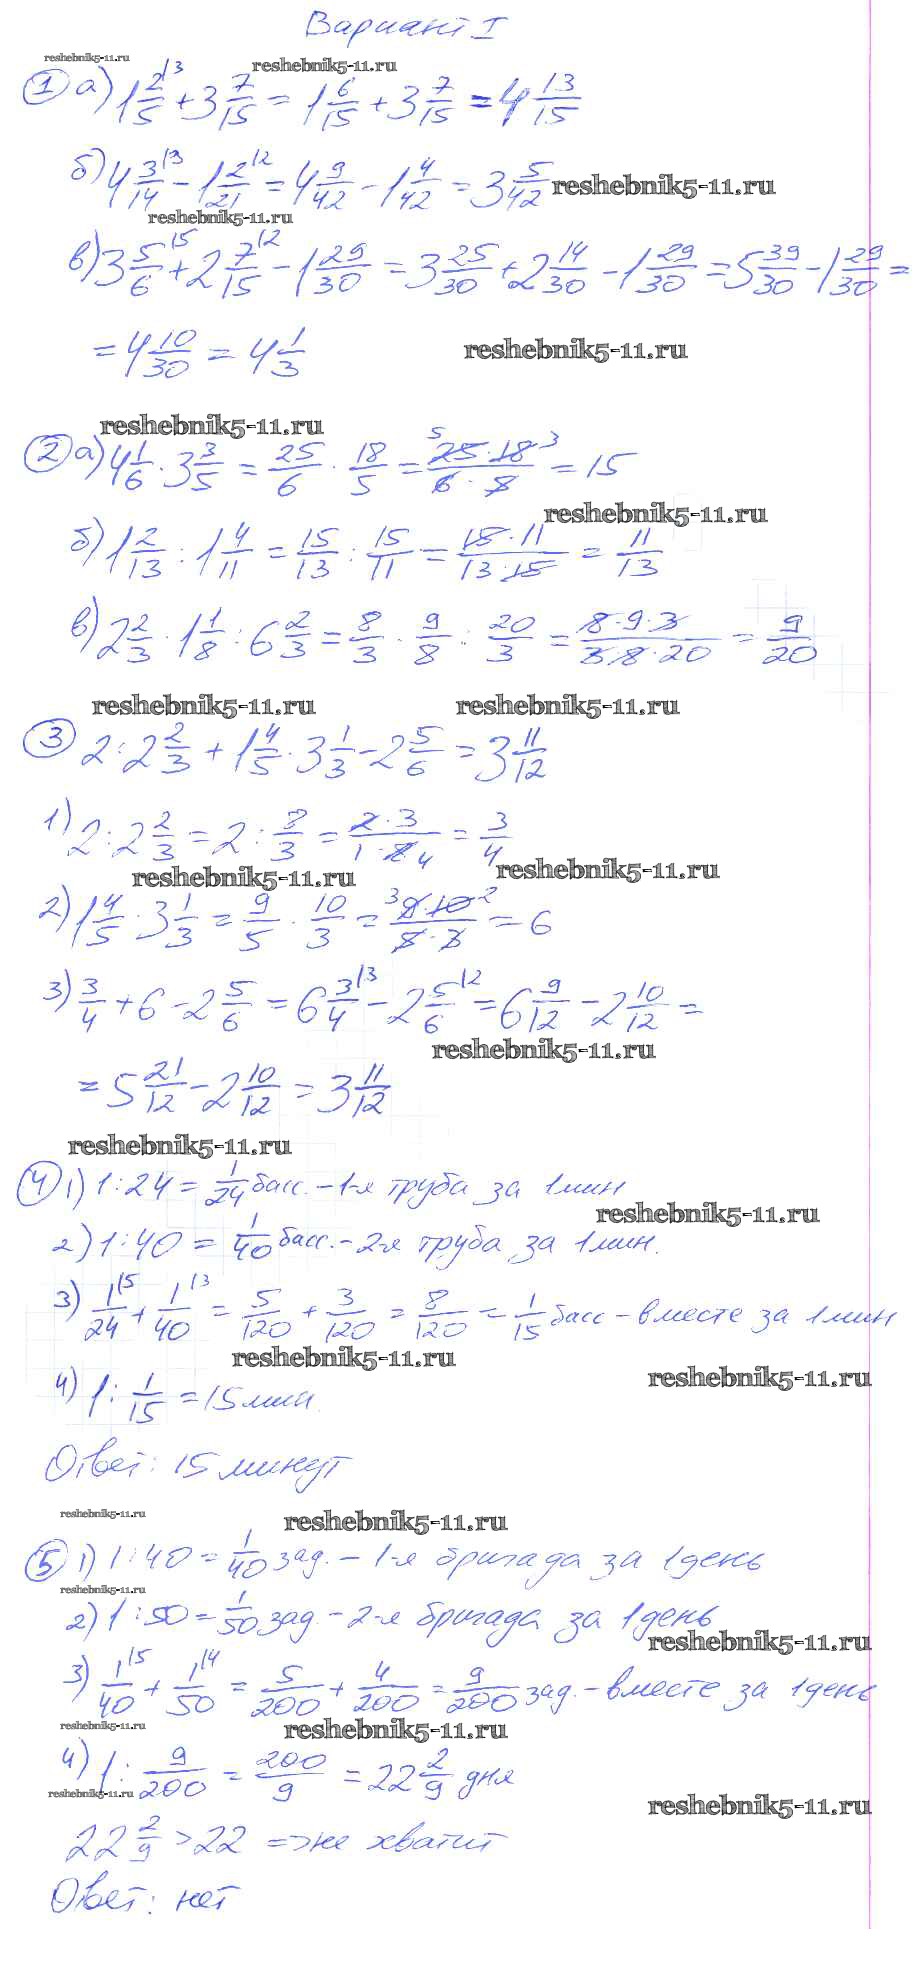 Вариант I
reshebnik5-11.ru reshebnik5-11.ru
① а) 1 2/5 ^(3 + 3 7/15 = 1 6/15 + 3 7/15 = 4 13/15
б) 4 3/14 ^(3 - 1 2/21 ^(2 = 4 9/42 - 1 4/42 = 3 5/42 reshebnik5-11.ru
reshebnik5-11.ru
в) 3 5/6 ^(5 + 2 7/15 ^(2 - 1 29/30 = 3 25/30 + 2 14/30 - 1 29/30 = 5 39/30 - 1 29/30 =
= 4 10/30 = 4 1/3 reshebnik5-11.ru
reshebnik5-11.ru
② а) 4 1/6 · 3 3/5 = 25/6 · 18/5 = 5 25·18 3 / 6·5 = 15
reshebnik5-11.ru
б) 1 2/13 : 1 4/11 = 15/13 : 15/11 = 15·11 / 13·15 = 11/13
в) 2 2/3 · 1 1/8 : 6 2/3 = 8/3 · 9/8 : 20/3 = 8·9·3 / 3·8·20 = 9/20
reshebnik5-11.ru reshebnik5-11.ru
③ 2 : 2 2/3 + 1 4/5 · 3 1/3 - 2 5/6 = 3 11/12
1) 2 : 2 2/3 = 2 : 8/3 = 2·3 / 1·8 4 = 3/4
reshebnik5-11.ru reshebnik5-11.ru
2) 1 4/5 · 3 1/3 = 9/5 · 10/3 = 3 9·10 2 / 5·3 = 6
3) 3/4 + 6 - 2 5/6 = 6 3/4 ^(3 - 2 5/6 ^(2 = 6 9/12 - 2 10/12 =
reshebnik5-11.ru
= 5 21/12 - 2 10/12 = 3 11/12
reshebnik5-11.ru
④ 1) 1 : 24 = 1/24 басс. - 1-я труба за 1 мин
reshebnik5-11.ru
2) 1 : 40 = 1/40 басс. - 2-я труба за 1 мин.
3) 1/24 ^(5 + 1/40 ^(3 = 5/120 + 3/120 = 8/120 = 1/15 басс - вместе за 1 мин
reshebnik5-11.ru reshebnik5-11.ru
4) 1 : 1/15 = 15 мин.
Ответ: 15 минут
reshebnik5-11.ru reshebnik5-11.ru
⑤ 1) 1 : 40 = 1/40 зад. - 1-я бригада за 1 день
reshebnik5-11.ru
2) 1 : 50 = 1/50 зад. - 2-я бригада за 1 день
reshebnik5-11.ru
3) 1/40 ^(5 + 1/50 ^(4 = 5/200 + 4/200 = 9/200 зад. - вместе за 1 день
reshebnik5-11.ru reshebnik5-11.ru
4) 1 : 9/200 = 200/9 = 22 2/9 дня
reshebnik5-11.ru reshebnik5-11.ru
22 2/9 > 22 => не хватит
Ответ: нет